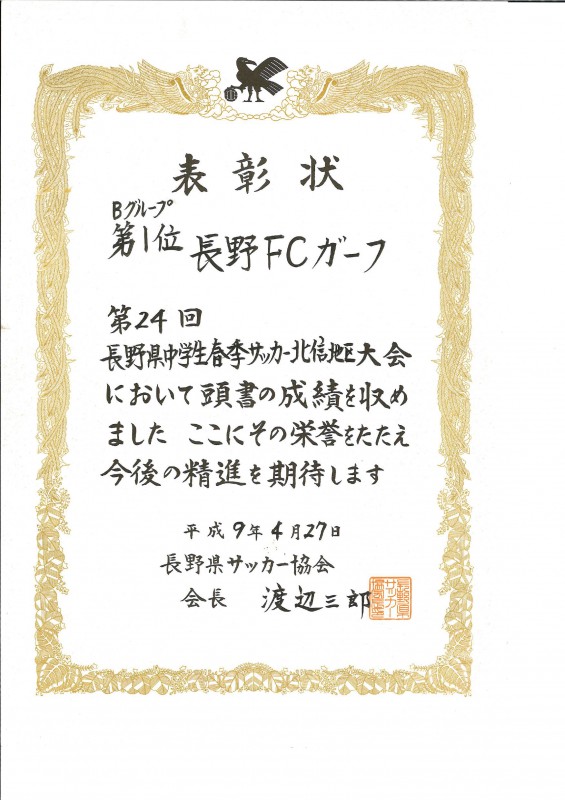 表彰状
Bグループ
第1位 長野FCガーフ
第24回
長野県中学生春季サッカー北信地区大会
において頭書の成績を収め
ました ここにその栄誉をたたえ
今後の精進を期待します
平成9年4月27日
長野県サッカー協会
会長 渡辺三郎